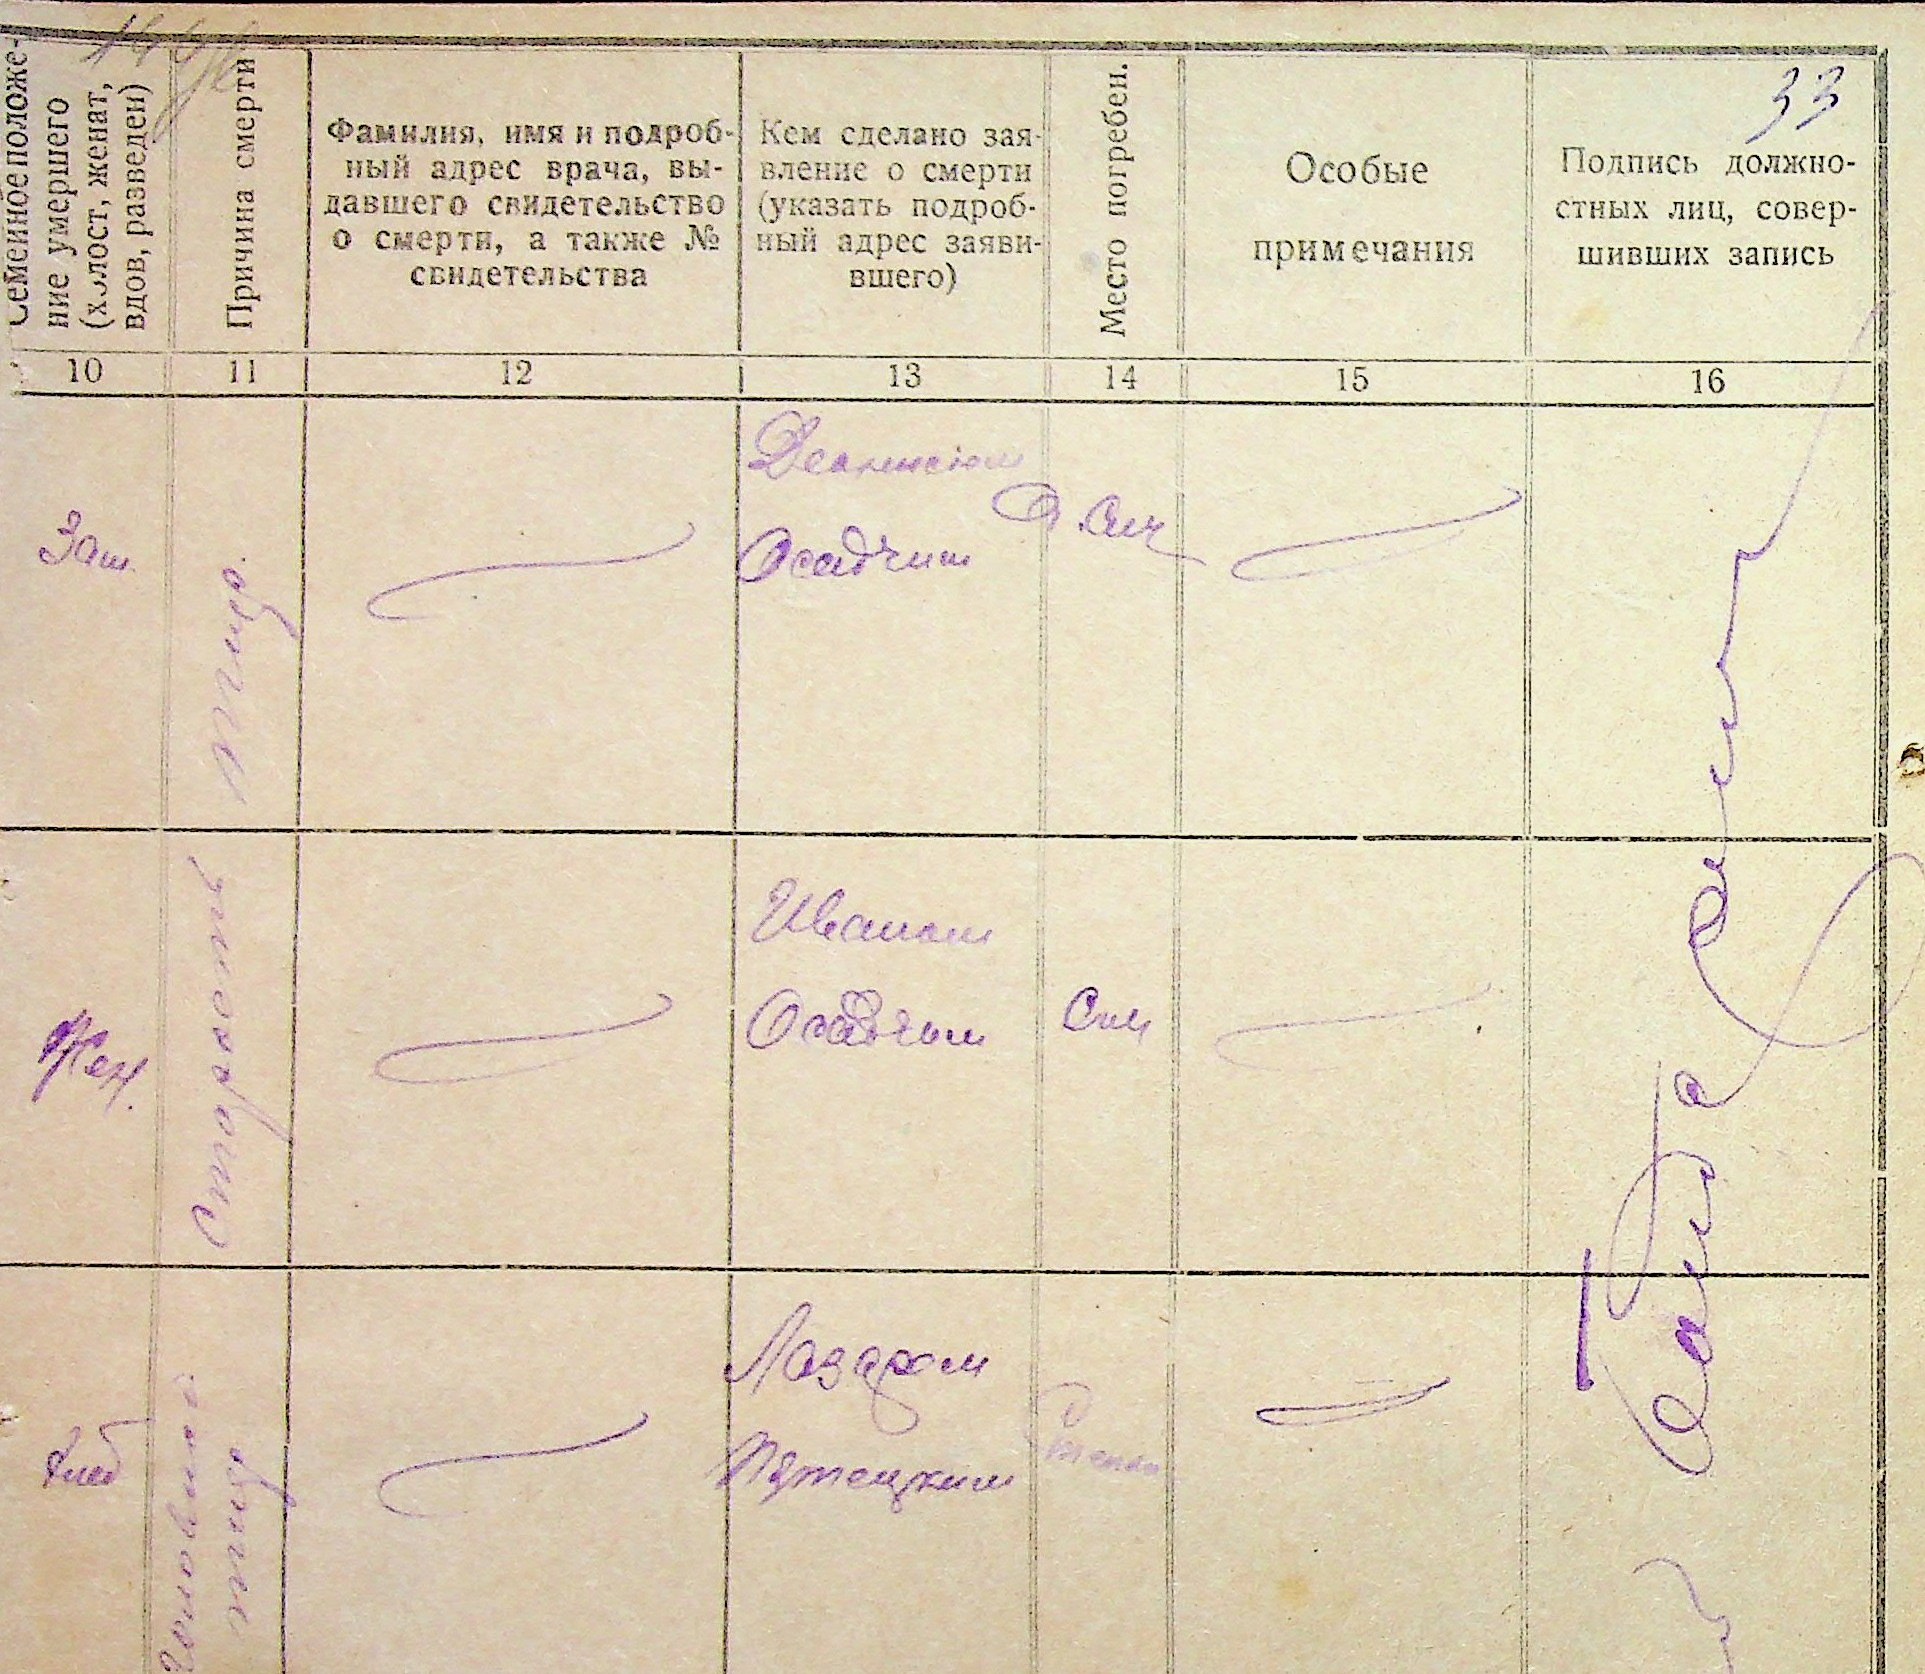 33
Семейное положе-
ние умершего
(холост, женат,
вдов, разведен)
Причина смерти
Фамилия, имя и подроб-
ный адрес врача, вы-
давшего свидетельство
о смерти, а также №
свидетельства
Кем сделано зая-
вление о смерти
(указать подроб-
ный адрес заяви-
вшего)
Место погребен.
Особые
примечания
Подпись должно-
стных лиц, совер-
шивших запись
10 11 12 13 14 15 16
Зам.
Осадчим
Жен.
Старость
Иваном
Осадчим
Лазаром
Пятецким